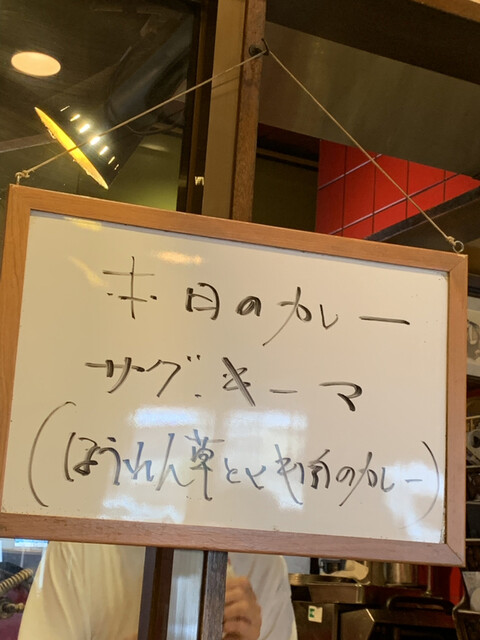 本日のカレー
サグ・キーマ
(ほうれん草とひき肉のカレー)